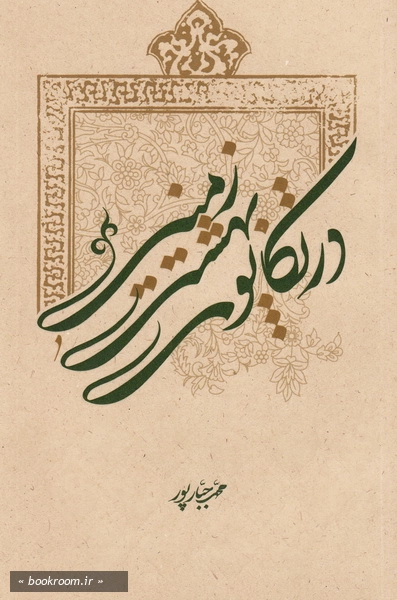 در تکاپوی
بهشت
زمینی
محب جبارپور
« bookroom.ir »